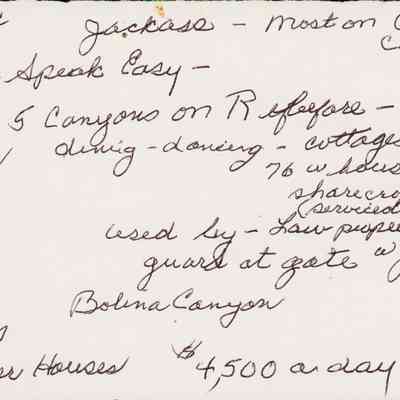 Jackass - most on
Speak Easy -
5 Canyons on R before -
dining - dancing - cottages
76 w hous
sharecro
(serviced
used by - Law
guard at gate w
Bolina Canyon
Houses $4,500 a day